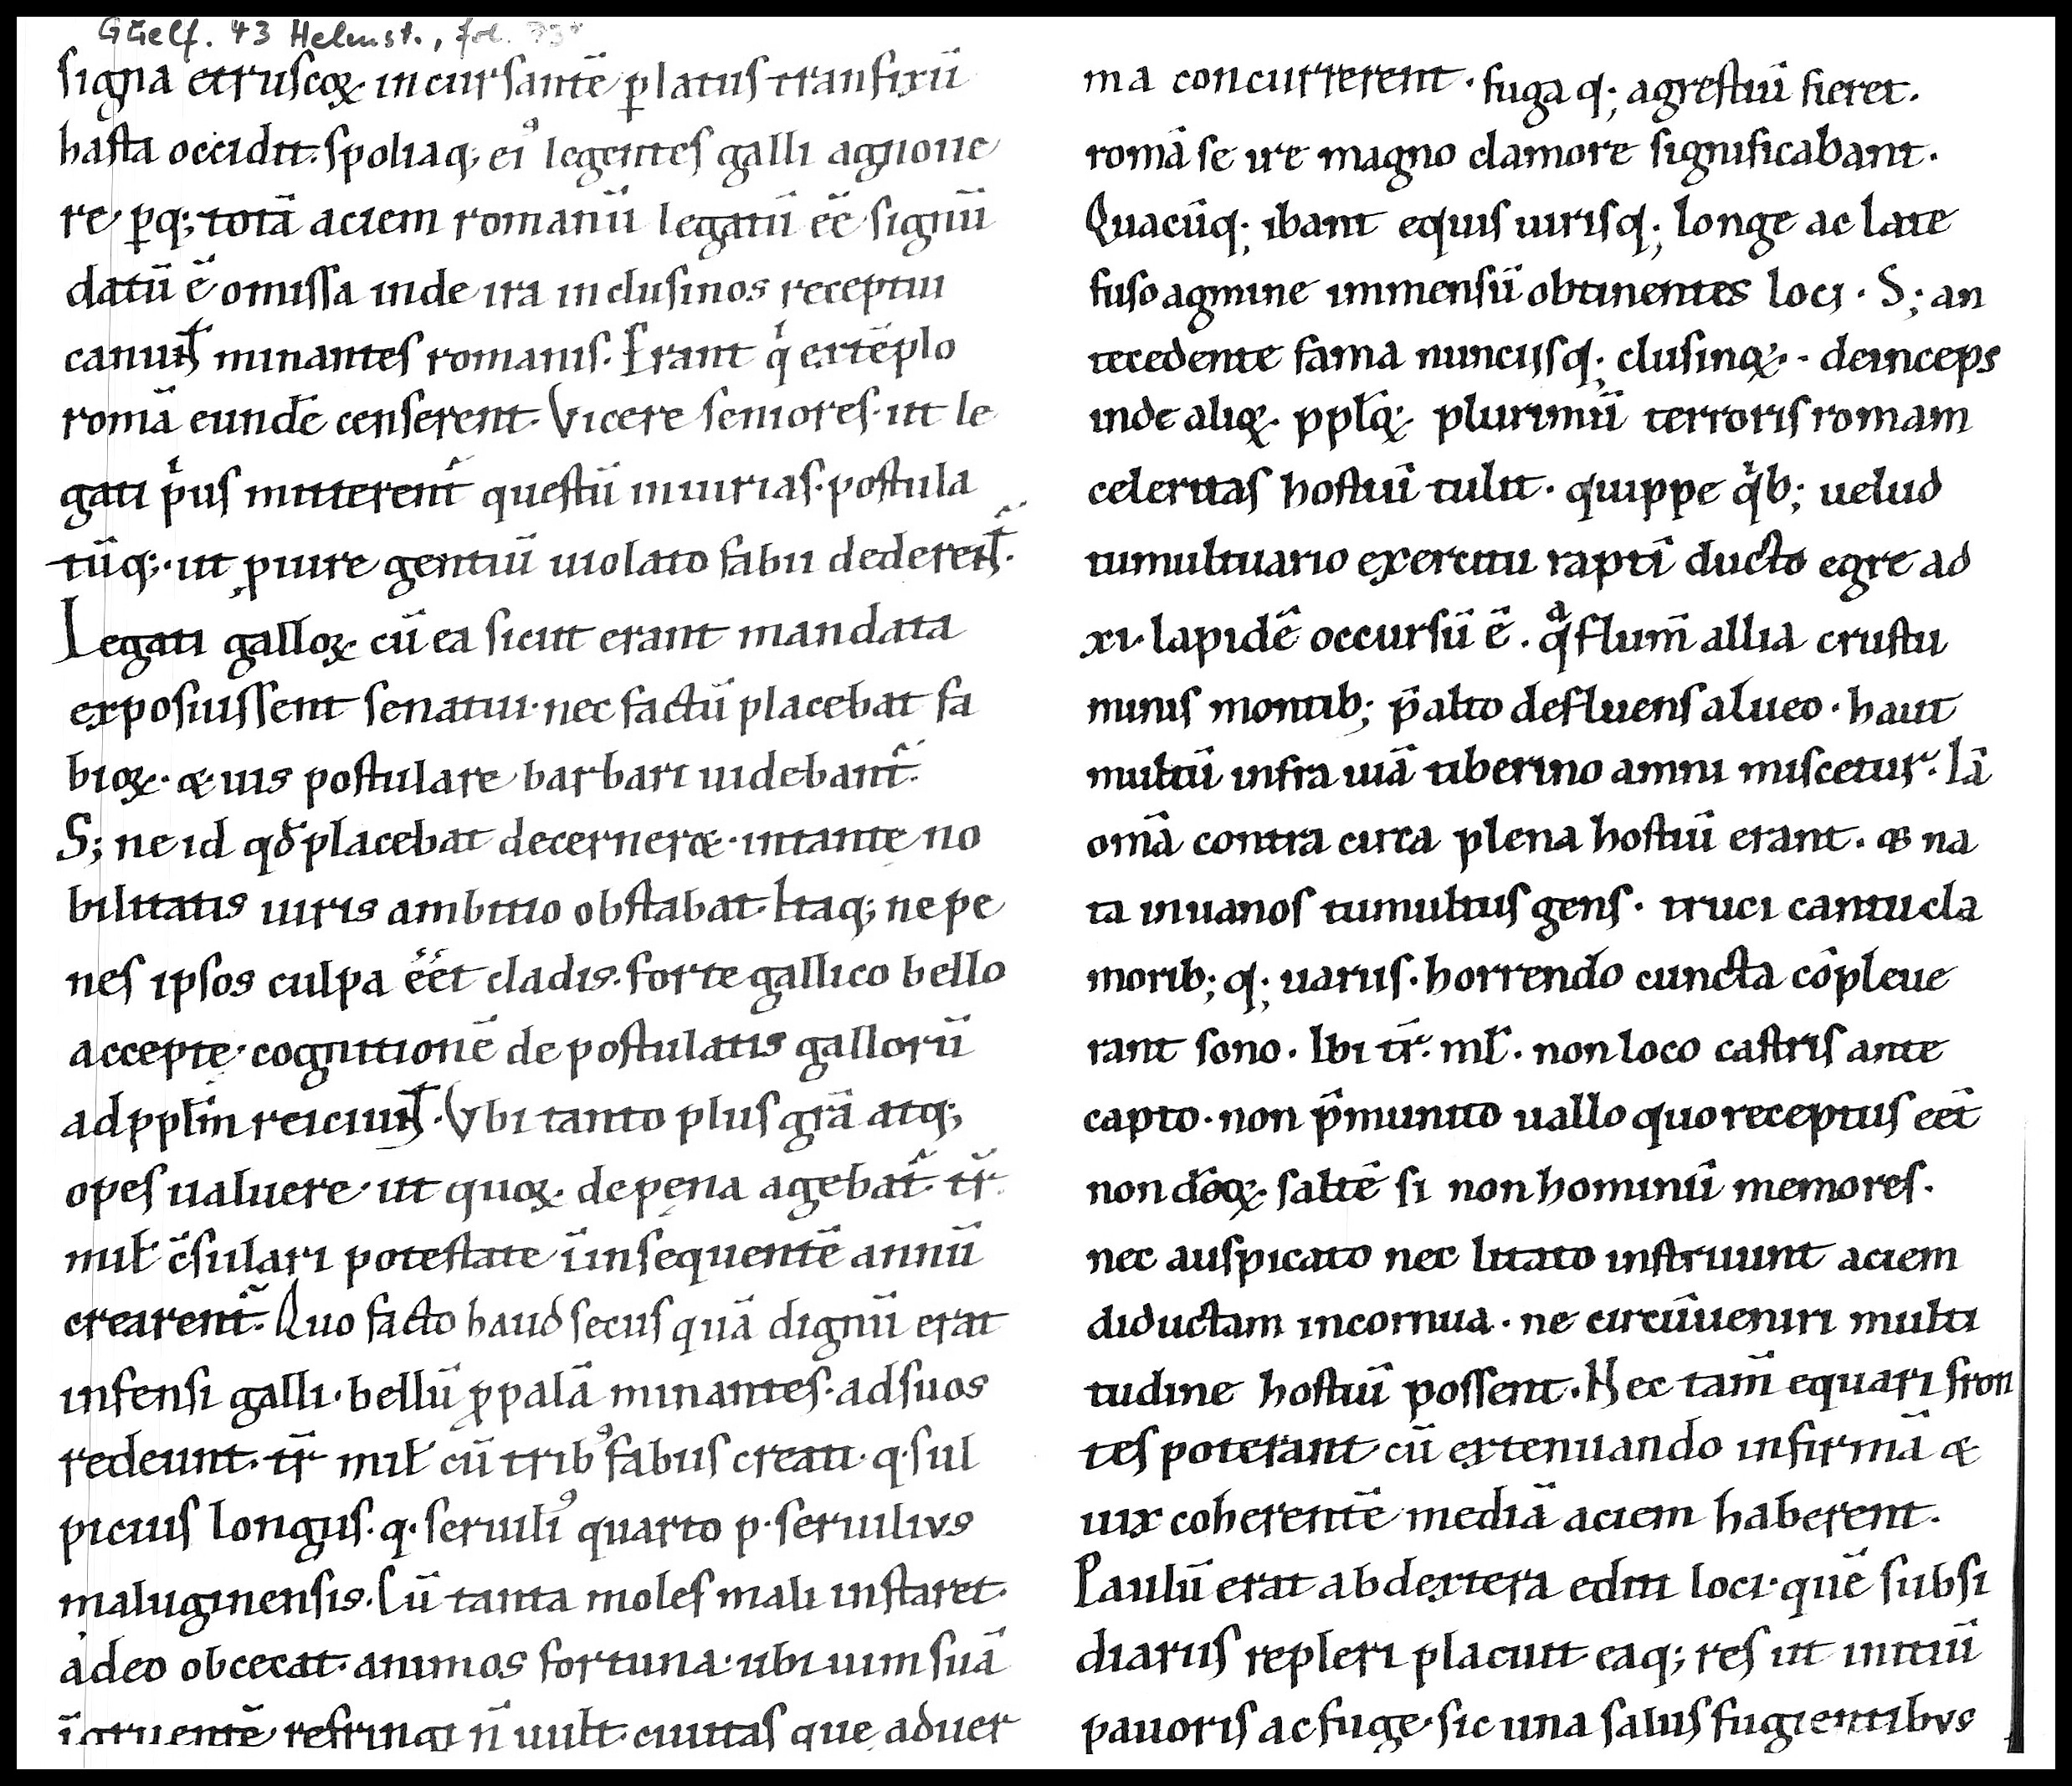 Guelf. 43 Helmst., fol.
signa etruscoꝝ· incursantē ꝑ latus transfixū
hasta occidit· spoliaq; ei⁹ legentes galli agnoue
re ꝑq; totā aciem romanū legatū eē signū
datū ē omissa inde ira in clusinos receptui
canunt̄ minantes romanis. Erant qͥ extēplo
romā eundē censerent· Vicere seniores· ut le
gati pͥus mitterent̂ questū iniurias· postula
tūq;· ut ꝓ iure gentiū uiolato fabii dederent̂.
Legati galloꝝ· cū ea sicut erant mandata
exposuissent senatui· nec factū placebat fa
bioꝝ· & uis postulare barbari uidebant̂.
S; ne id qđ placebat decerner&· in tante no
bilitatis uiris ambitio obstabat· Itaq; ne pe
nes ipsos culpa eēt cladis· forte gallico bello
accepte· cognitionē de postulatis gallorū
ad pplm̄ reiciunt̄· Vbi tanto plus grā atq;
opes ualuere· ut quoꝝ· de pena agebat̂ tr̄.
mił c̄sulari potestate ī insequentē annū
crearent̂. Quo facto haud secus quā dignū erat
infensi galli· bellū ꝓpalā minantes· ad suos
redeunt· tr̄ mił cū trib⁹ fabiis creati· q· sul
picius longus· q· seruili⁹ quarto p· seruilius
maluginensis· Cū tanta moles mali instaret·
adeo obcecat· animos fortuna· ubi uim suā
īgruentē refringi n̄ uult· ciuitas que aduer
ma concurrerent· fuga q; agrestiū fieret.
romā se ire magno clamore significabant.
Quacūq; ibant equis uirisq; longe ac late
fuso agmine immensū obtinentes loci· S; an
tecedente fama nunciisq; clusinoꝝ·- deinceps
inde alioꝝ· pplōꝝ· plurimū terroris romam
celeritas hostiū tulit· quippe qͥb; uelud
tumultuario exercitu raptī ducto egre ad
xi· lapidē occursū ē. qᵃ flum̄ allia crustu
minis montib; p̄alto defluens alueo· haut
multū infra uiā tiberino amni miscetur· Iā
om̄a contra circa plena hostiū erant· & na
ta in uanos tumultus gens· truci cantu cla
morib; q; uariis· horrendo cuncta cōpleue
rant sono· Ibi tr̄· mł· non loco castris ante
capto· non p̄munito uallo quo receptus eēt
non dōꝝ· saltē si non hominū memores.
nec auspicato nec litato instruunt aciem
diductam in cornua· ne circūueniri multi
tudine hostiū possent· Nec tam̄ equari fron
tes poterant cū extenuando infirmā &
uix coherentē mediā aciem haberent.
Paulū erat ab dextera editi loci· quē subsi
diariis repleri placuit eaq; res ut initiū
pauoris ac fuge· sic una salus fugientibus